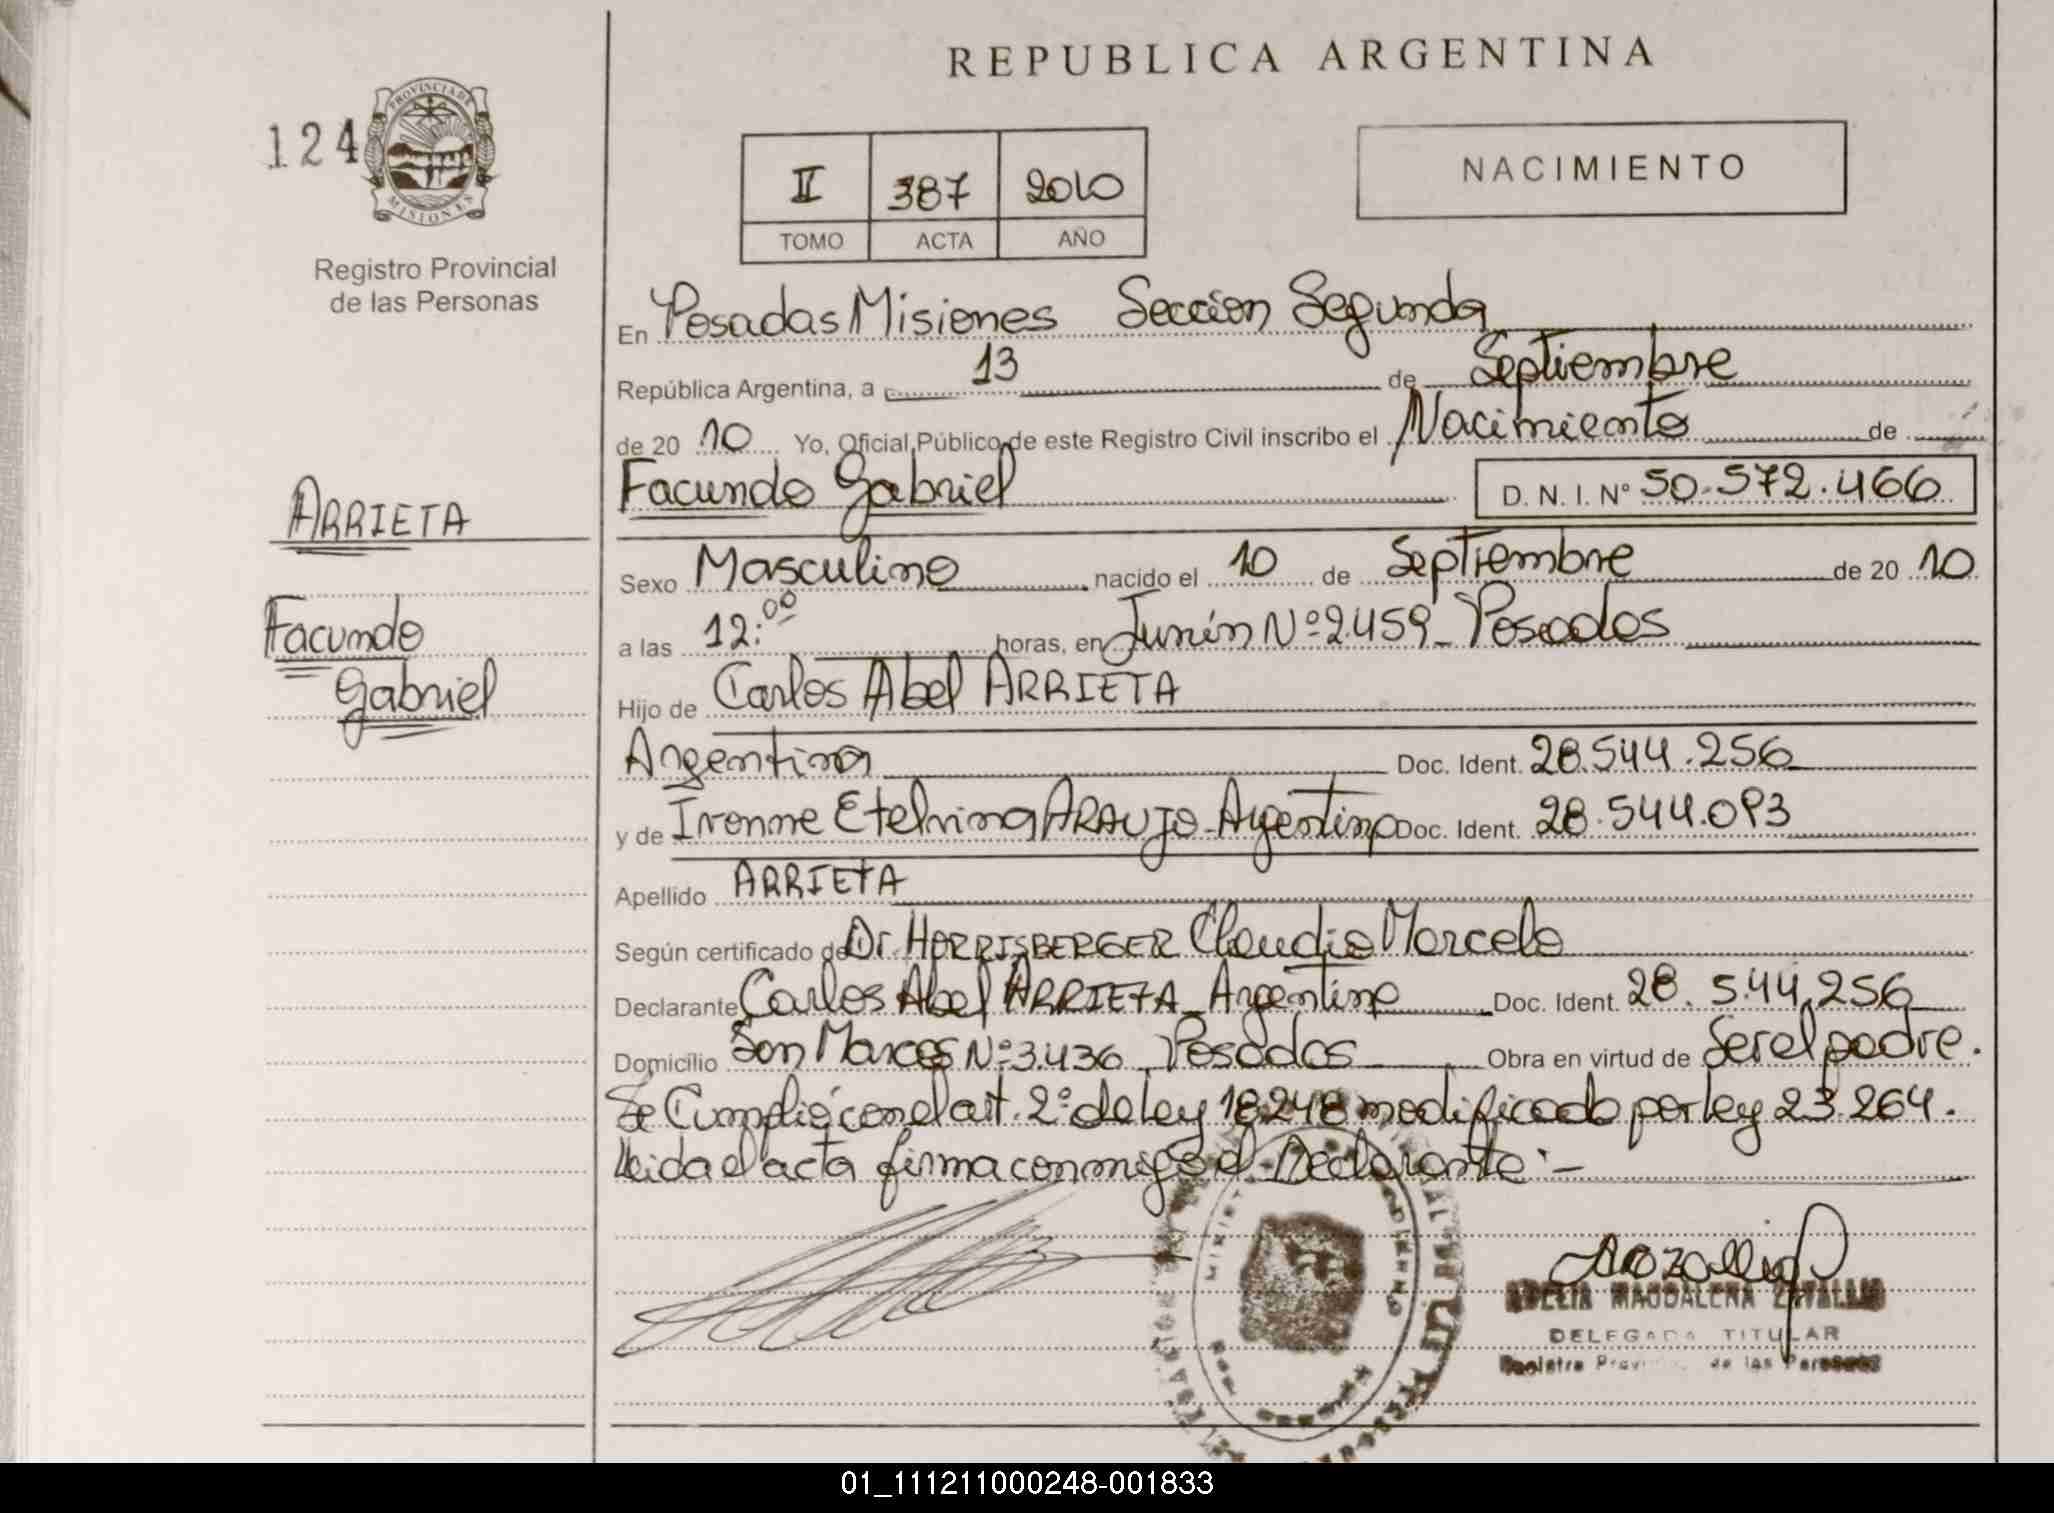 REPUBLICA ARGENTINA
124
PROVINCIA DE
MISIONES
Registro Provincial
de las Personas
II 387 2010
TOMO ACTA AÑO
NACIMIENTO
En Posadas Misiones Sección Segunda
República Argentina, a 13 de Septiembre
de 20 10 Yo, Oficial Público de este Registro Civil inscribo el Nacimiento de
Facundo Gabriel D. N. I. N° 50.572.466
ARRIETA
Facundo
Gabriel
Sexo Masculino nacido el 10 de Septiembre de 20 10
a las 12:00 horas, en Junín Nº 2.459_ Posadas
Hijo de Carlos Abel ARRIETA
Argentino Doc. Ident. 28.544.256
y de Ivonne Etelvina ARAUJO_Argentina Doc. Ident. 28.544.093
Apellido ARRIETA
Según certificado de Dr. HORRISBERGER Claudio Marcelo
Declarante Carlos Abel ARRIETA_ Argentino Doc. Ident. 28.544.256
Domicilio San Marcos Nº 3.436_ Posadas Obra en virtud de Ser el padre.
Se Cumplió con el art. 2º de Ley 18248 modificado por ley 23.264.
Leida el acta firma conmigo el Declarante:-
MAGDALENA
DELEGADA TITULAR
Registro Provincial de las Personas
01_111211000248-001833